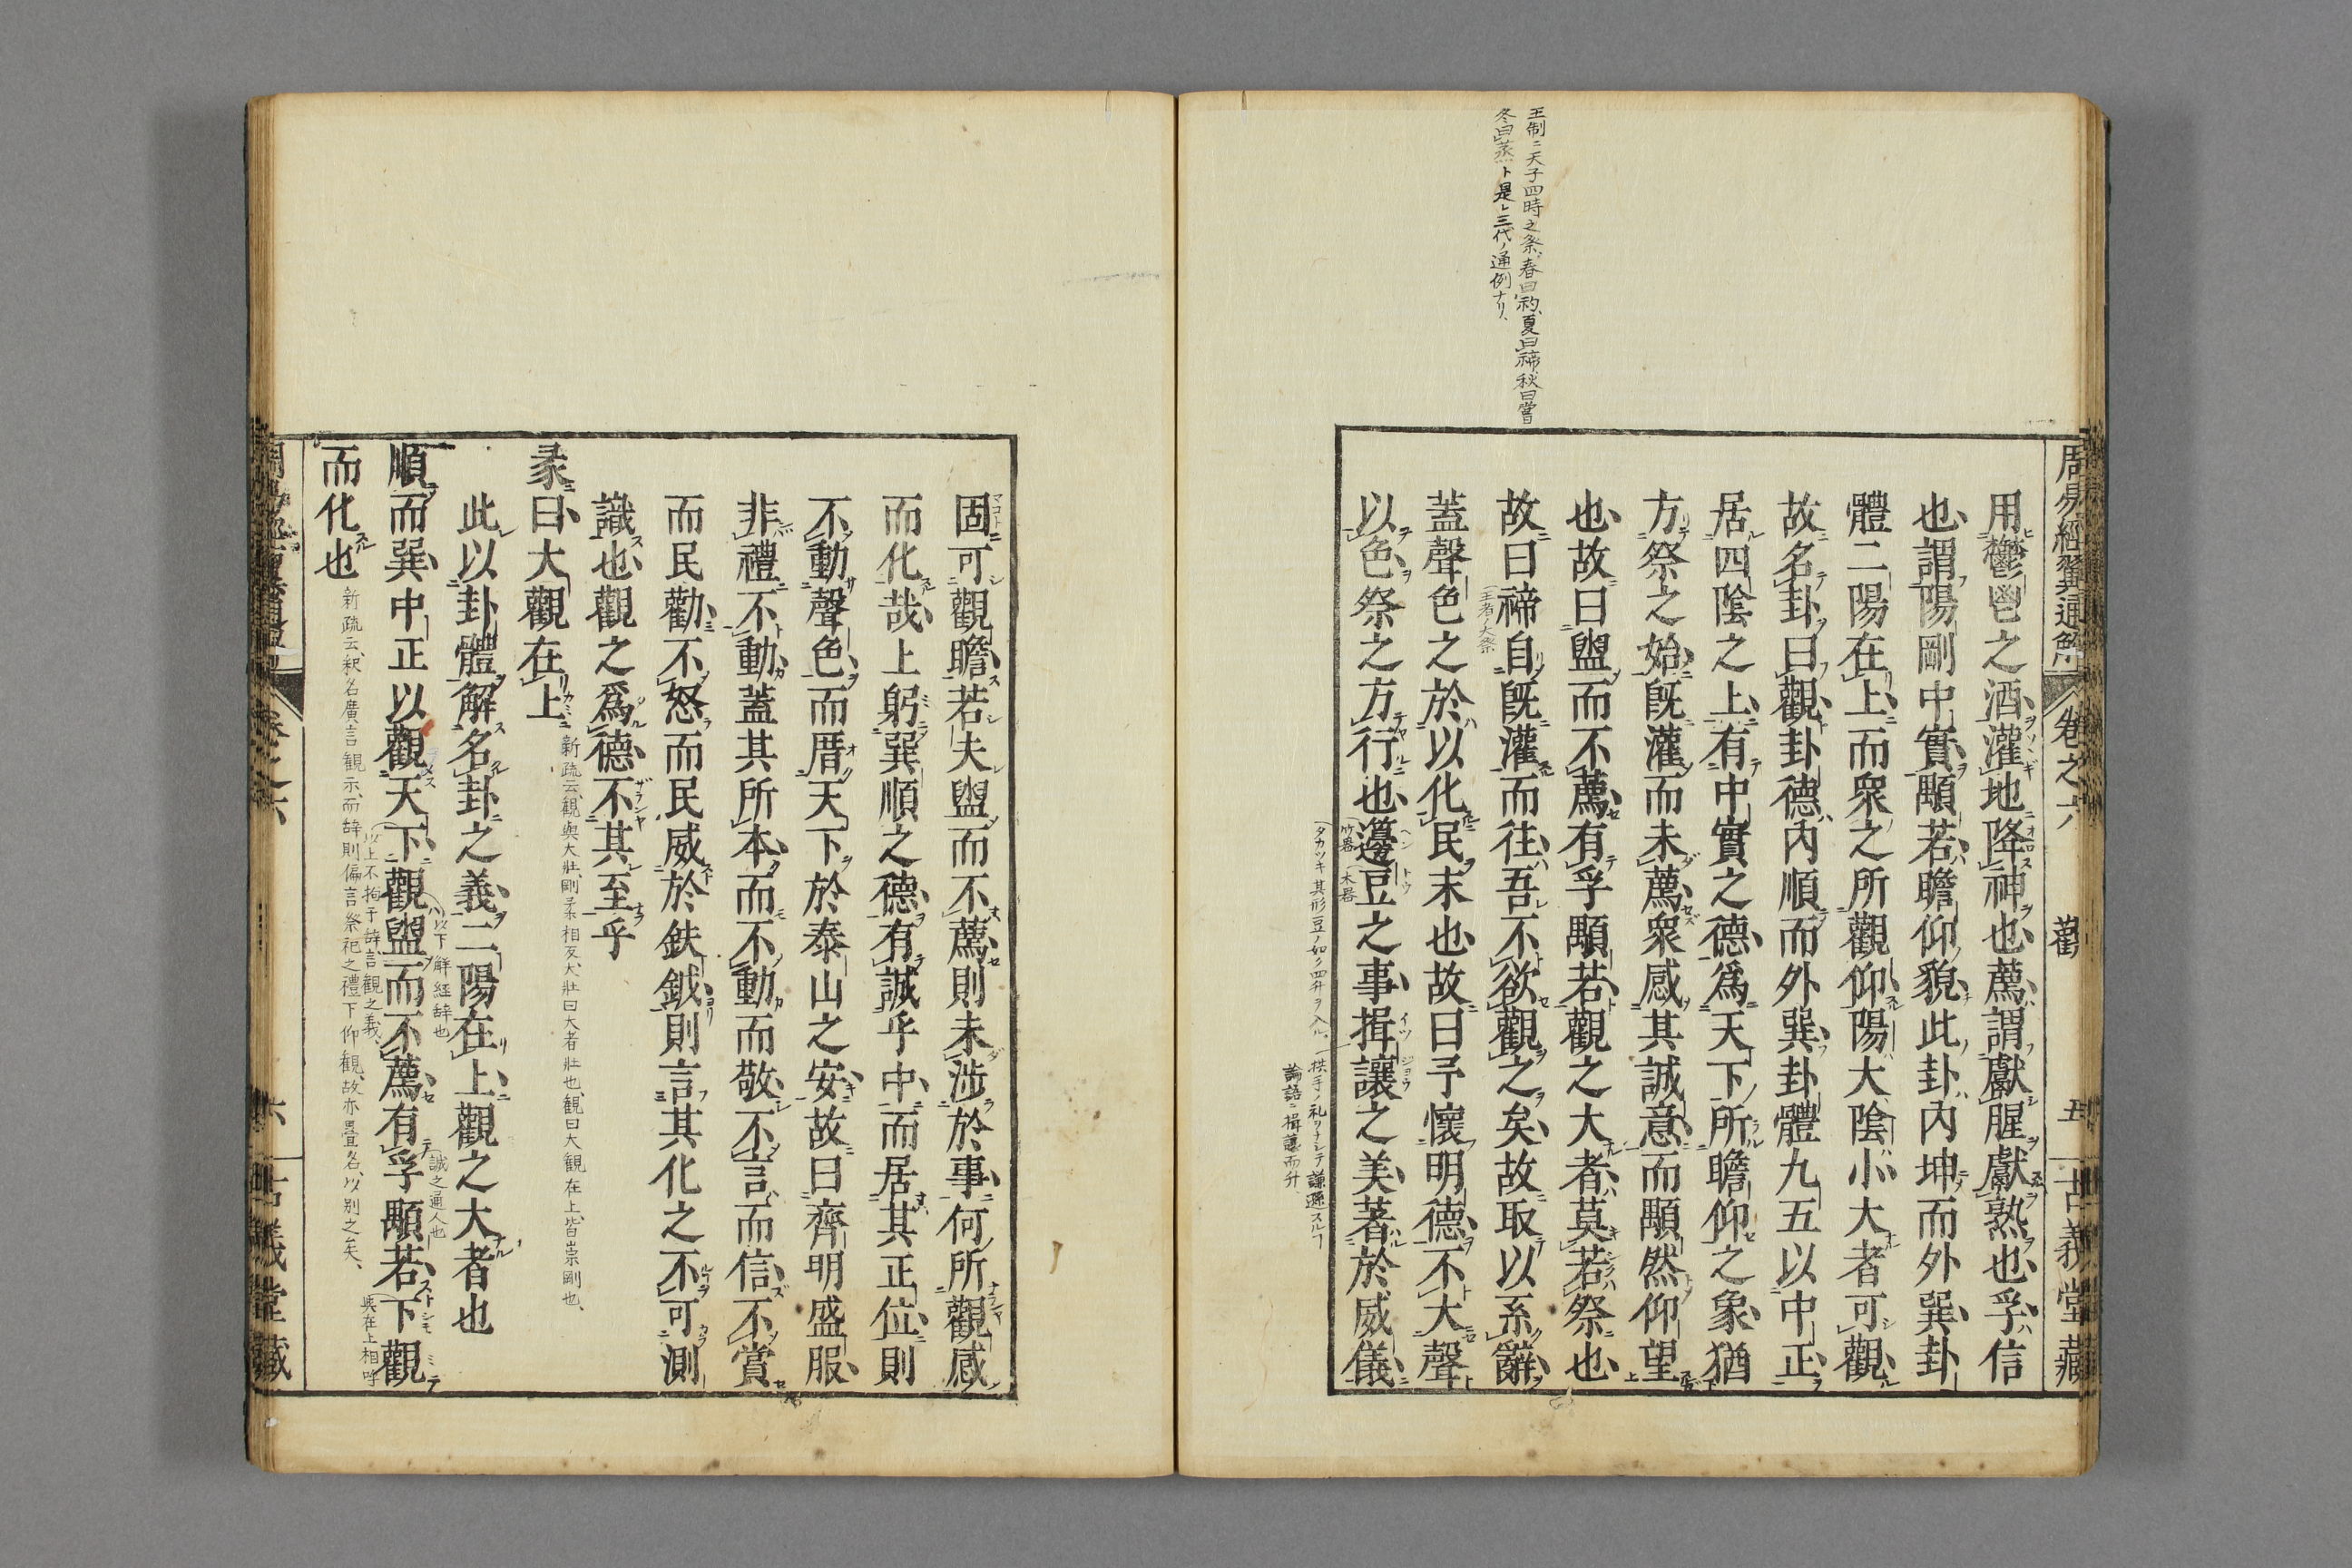 王制ニ天子四時之祭、春曰礿、夏曰禘、秋曰嘗
冬曰蒸ト是レ三代ノ通例ナリ、
周易經翼通解 卷之六 觀 五 古義堂藏
用鬱鬯之酒灌地降神也薦謂獻腥獻熟也孚信
也謂陽剛中實顒若瞻仰貌此卦內坤而外巽卦
體二陽在上而衆之所觀仰陽大陰小大者可觀
故名卦曰觀卦德內順而外巽卦體九五以中正
居四陰之上有中實之德爲天下所瞻仰之象猶
方祭之始旣灌而未薦衆感其誠意而顒然仰望
也故曰盥而不薦有孚顒若觀之大者莫若祭也
故曰禘自旣灌而往吾不欲觀之矣故取以系辭
(王者ノ大祭
蓋聲色之於以化民末也故曰予懷明德不大聲
以色祭之方行也籩豆之事揖讓之美著於威儀
(竹器 木器
(タカツキ其形豆ノ如ク四升ヲ入ル、 拱手ノ礼ヲナシテ謙遜スル
論語ニ揖讓而升、
固可觀瞻若夫盥而不薦則未涉於事何所觀感
而化哉上躬巽順之德有誠乎中而居其正位則
不動聲色而厝天下於泰山之安故曰齊明盛服
非禮不動蓋其所本而不動而敬不言而信不賞
而民勸不怒而民威於鈇鉞則言其化之不可測
識也觀之爲德不其至乎
彖曰大觀在上
新疏云、觀與大壯、剛柔相反、大壯曰大者壯也、觀曰大觀在上、皆崇剛也、
此以卦體解名卦之義二陽在上觀之大者也
(以下解經辭也 (誠之通人也
順而巽中正以觀天下觀盥而不薦有孚顒若下觀
(以上不拘于辭言觀之義、 與在上相呼
而化也
新疏云、釈名廣言觀示、而辭則偏言祭祀之禮下仰觀、故亦畳名、以別之矣、
卷之六 六 古義堂藏